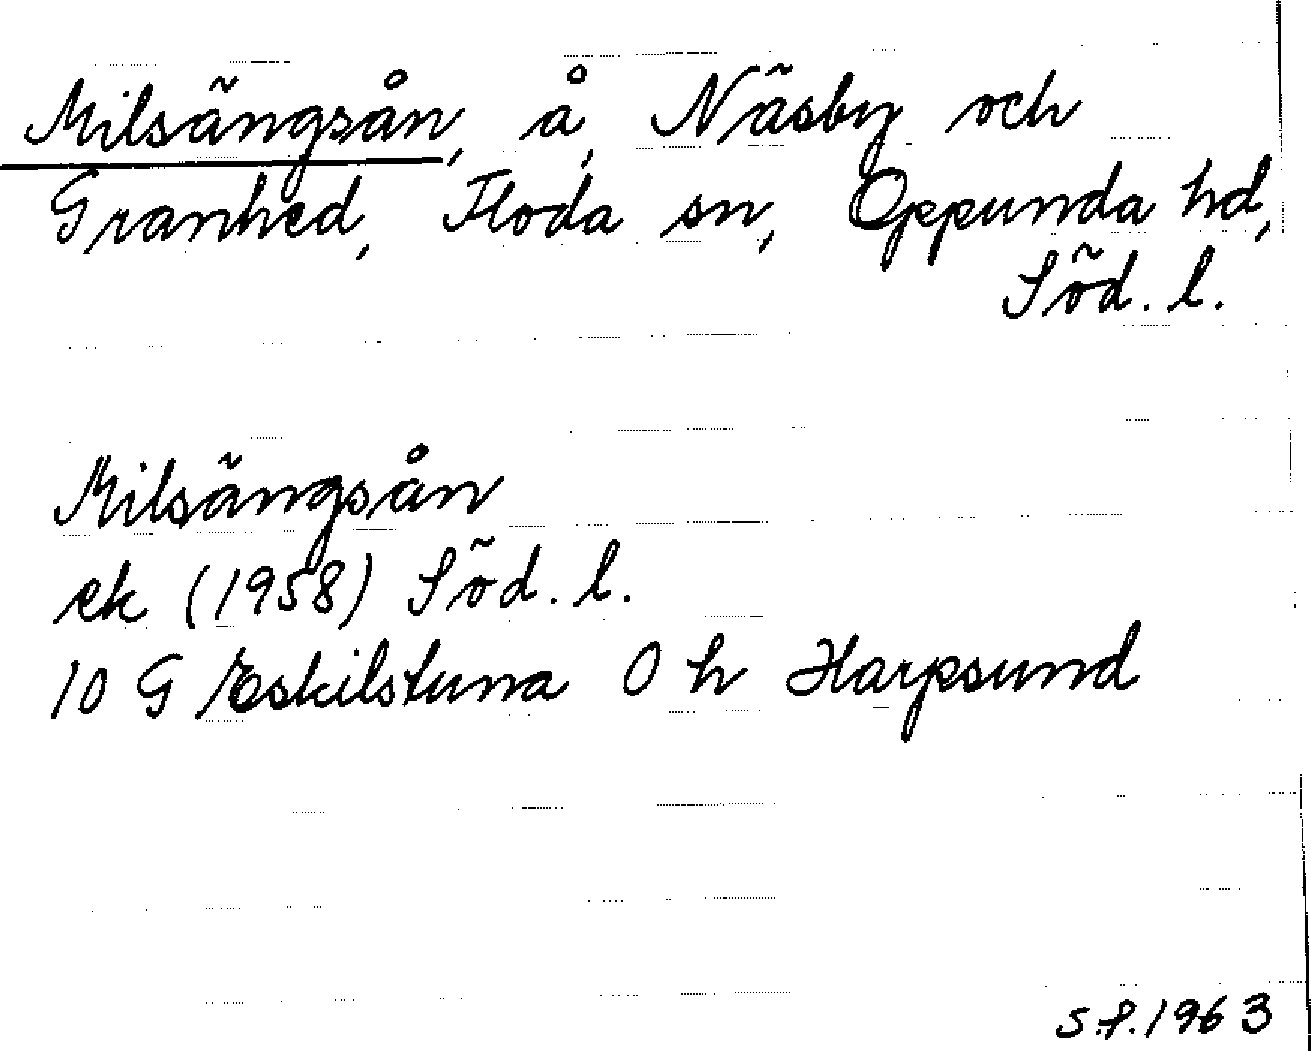 Milsängsån, å, Näsby och
Granhed, Floda sn, Oppunda hd,
Söd. l.
Milsängsån
ek (1958) Söd. l.
10 G Eskilstuna 0 h Harpsund
S.P. 1963